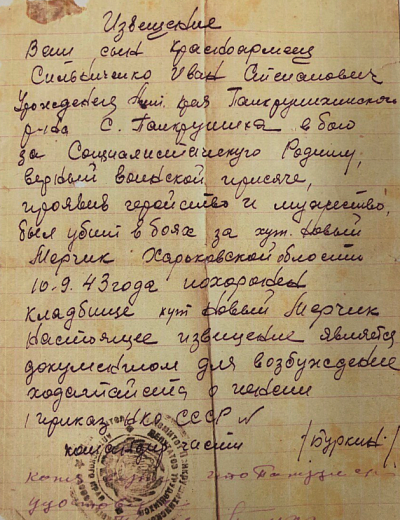 Извещение
Ваш сын Красноармеец
Сильниченко Иван Степанович
Урожденец Алт. края Панкрушихинского
р-на С. Панкрушиха в бою
за Социалистическую Родину,
верный воинской присяге,
проявив геройство и мужество,
был убит в боях за хут. Новый
Мерчик Харьковской области
10.9.43 года похоронен
кладбище хут Новый Мерчик
настоящее извищение является
документом для возбуждение
ходатайства о пенсии
/приказ НКО СССР №
командир части /Буркин/